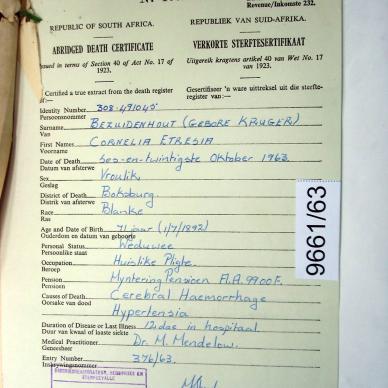 Revenue/Inkomste 232.
REPUBLIC OF SOUTH AFRICA.
REPUBLIEK VAN SUID-AFRIKA.
ABRIDGED DEATH CERTIFICATE
VERKORTE STERFTESERTIFIKAAT
Issued in terms of Section 40 of Act No. 17 of 1923.
Uitgereik kragtens artikel 40 van Wet No. 17 van 1923.
Certified a true extract from the death register of:—
Gesertifiseer 'n ware uittreksel uit die sterfteregister van:—
Identity Number 308-491045
Persoonsnommer
Surname BEZUIDENHOUT (GEBORE KRUGER)
Van
First Names CORNELIA ETRESIA
Voorname
Date of Death Ses-en-twintigste Oktober 1963.
Datum van afsterwe
Sex Vroulik
Geslag
District of Death Boksburg
Distrik van afsterwe
Race Blanke
Ras
Age and Date of Birth 71 jaar (1/7/1892)
Ouderdom en datum van geboorte
Personal Status Weduwee
Persoonlike staat
Occupation Huislike Pligte.
Beroep
Pension Myntering Pensioen A.A. 9900F.
Pensioen
Causes of Death Cerebral Haemorrhage
Oorsake van dood
Hypertensia
Duration of Disease or Last Illness 12 dae in hospitaal
Duur van kwaal of laaste siekte
Medical Practitioner Dr. M. Mendelow.
Geneesheer
Entry Number 376/63.
Inskrywingsnommer
9661/63